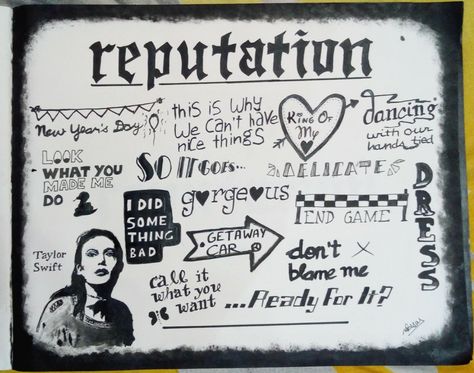 reputation
New Year's Day
this is Why
We Can't have
nice things
King Of
My
dancing
with our
hands tied
LOOK
WHAT YOU
MADE ME
DO
SO IT GOES...
DELICATE
gorgeous
I DID
SOME
THING
BAD
END GAME
DRESS
GETAWAY
CAR
Taylor
Swift
don't
blame me
call it
what you
want
...Ready For It?